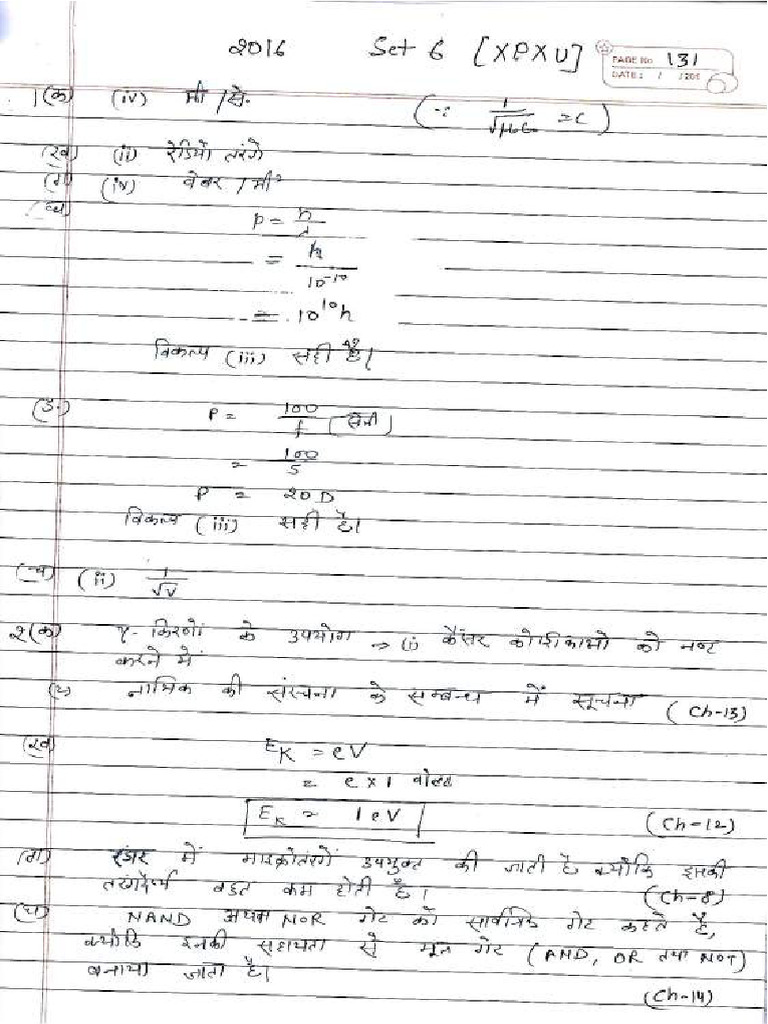 2016 Set 6 [XPXU]
PAGE No. 131
DATE: / /200
1(क) (iv) मी/से. (∵ 1/√μ₀ε = c)
(ख) (ii) रेडियो तरंगे
(ग) (iv) वेबर/मी²
(घ) p = h/λ
= h/10⁻¹⁰
= 10¹⁰h
विकल्प (iii) सही है।
(ङ) P = 100/f (सेमी)
= 100/5
P = 20 D
विकल्प (iii) सही है।
(च) (ii) 1/√V
2(क) γ-किरणों के उपयोग → (i) कैंसर कोशिकाओ को नष्ट
करने में
नाभिक की संरचना के सम्बन्ध में सूचना (Ch-13)
(ख) EK = eV
= e × 1 वोल्ट
EK = 1eV
(Ch-12)
(ग) में माइक्रोतरंगें उपयुक्त की जाती है क्योकि इनकी
तरंगदैर्ध्य बहुत कम होती है।
(Ch-8)
(घ) NAND अथवा NOR गेट को सार्वत्रिक गेट कहते है,
क्योकि इनकी सहायता से मूल गेट (AND, OR तथा NOT)
बनाया जाता है।
(Ch-14)